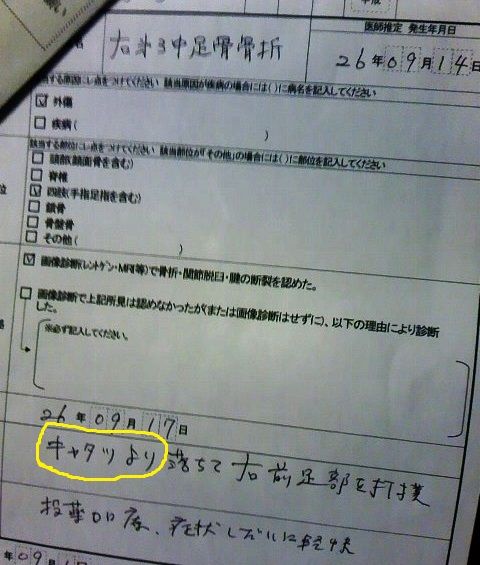 医師推定 発生年月日
右第3中足骨骨折
26年09月14日
該当する原因にレ点をつけてください 該当原因が疾病の場合には()に病名を記入してください
外傷
疾病( )
該当する部位にレ点をつけてください 該当部位が「その他」の場合には()に部位を記入してください
頭部(顔面骨を含む)
脊椎
四肢(手指足指を含む)
鎖骨
骨盤骨
その他( )
画像診断(レントゲン・MRI等)で骨折・関節脱臼・腱の断裂を認めた。
画像診断で上記所見は認めなかったが(または画像診断はせずに)、以下の理由により診断
した。
※必ず記入してください。
26年09月17日
キャタツより落ちて右前足部を打撲
症状
年09